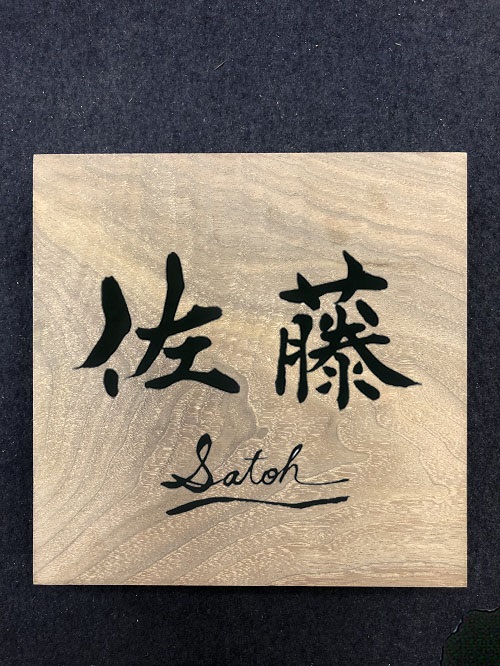 佐藤
Satoh